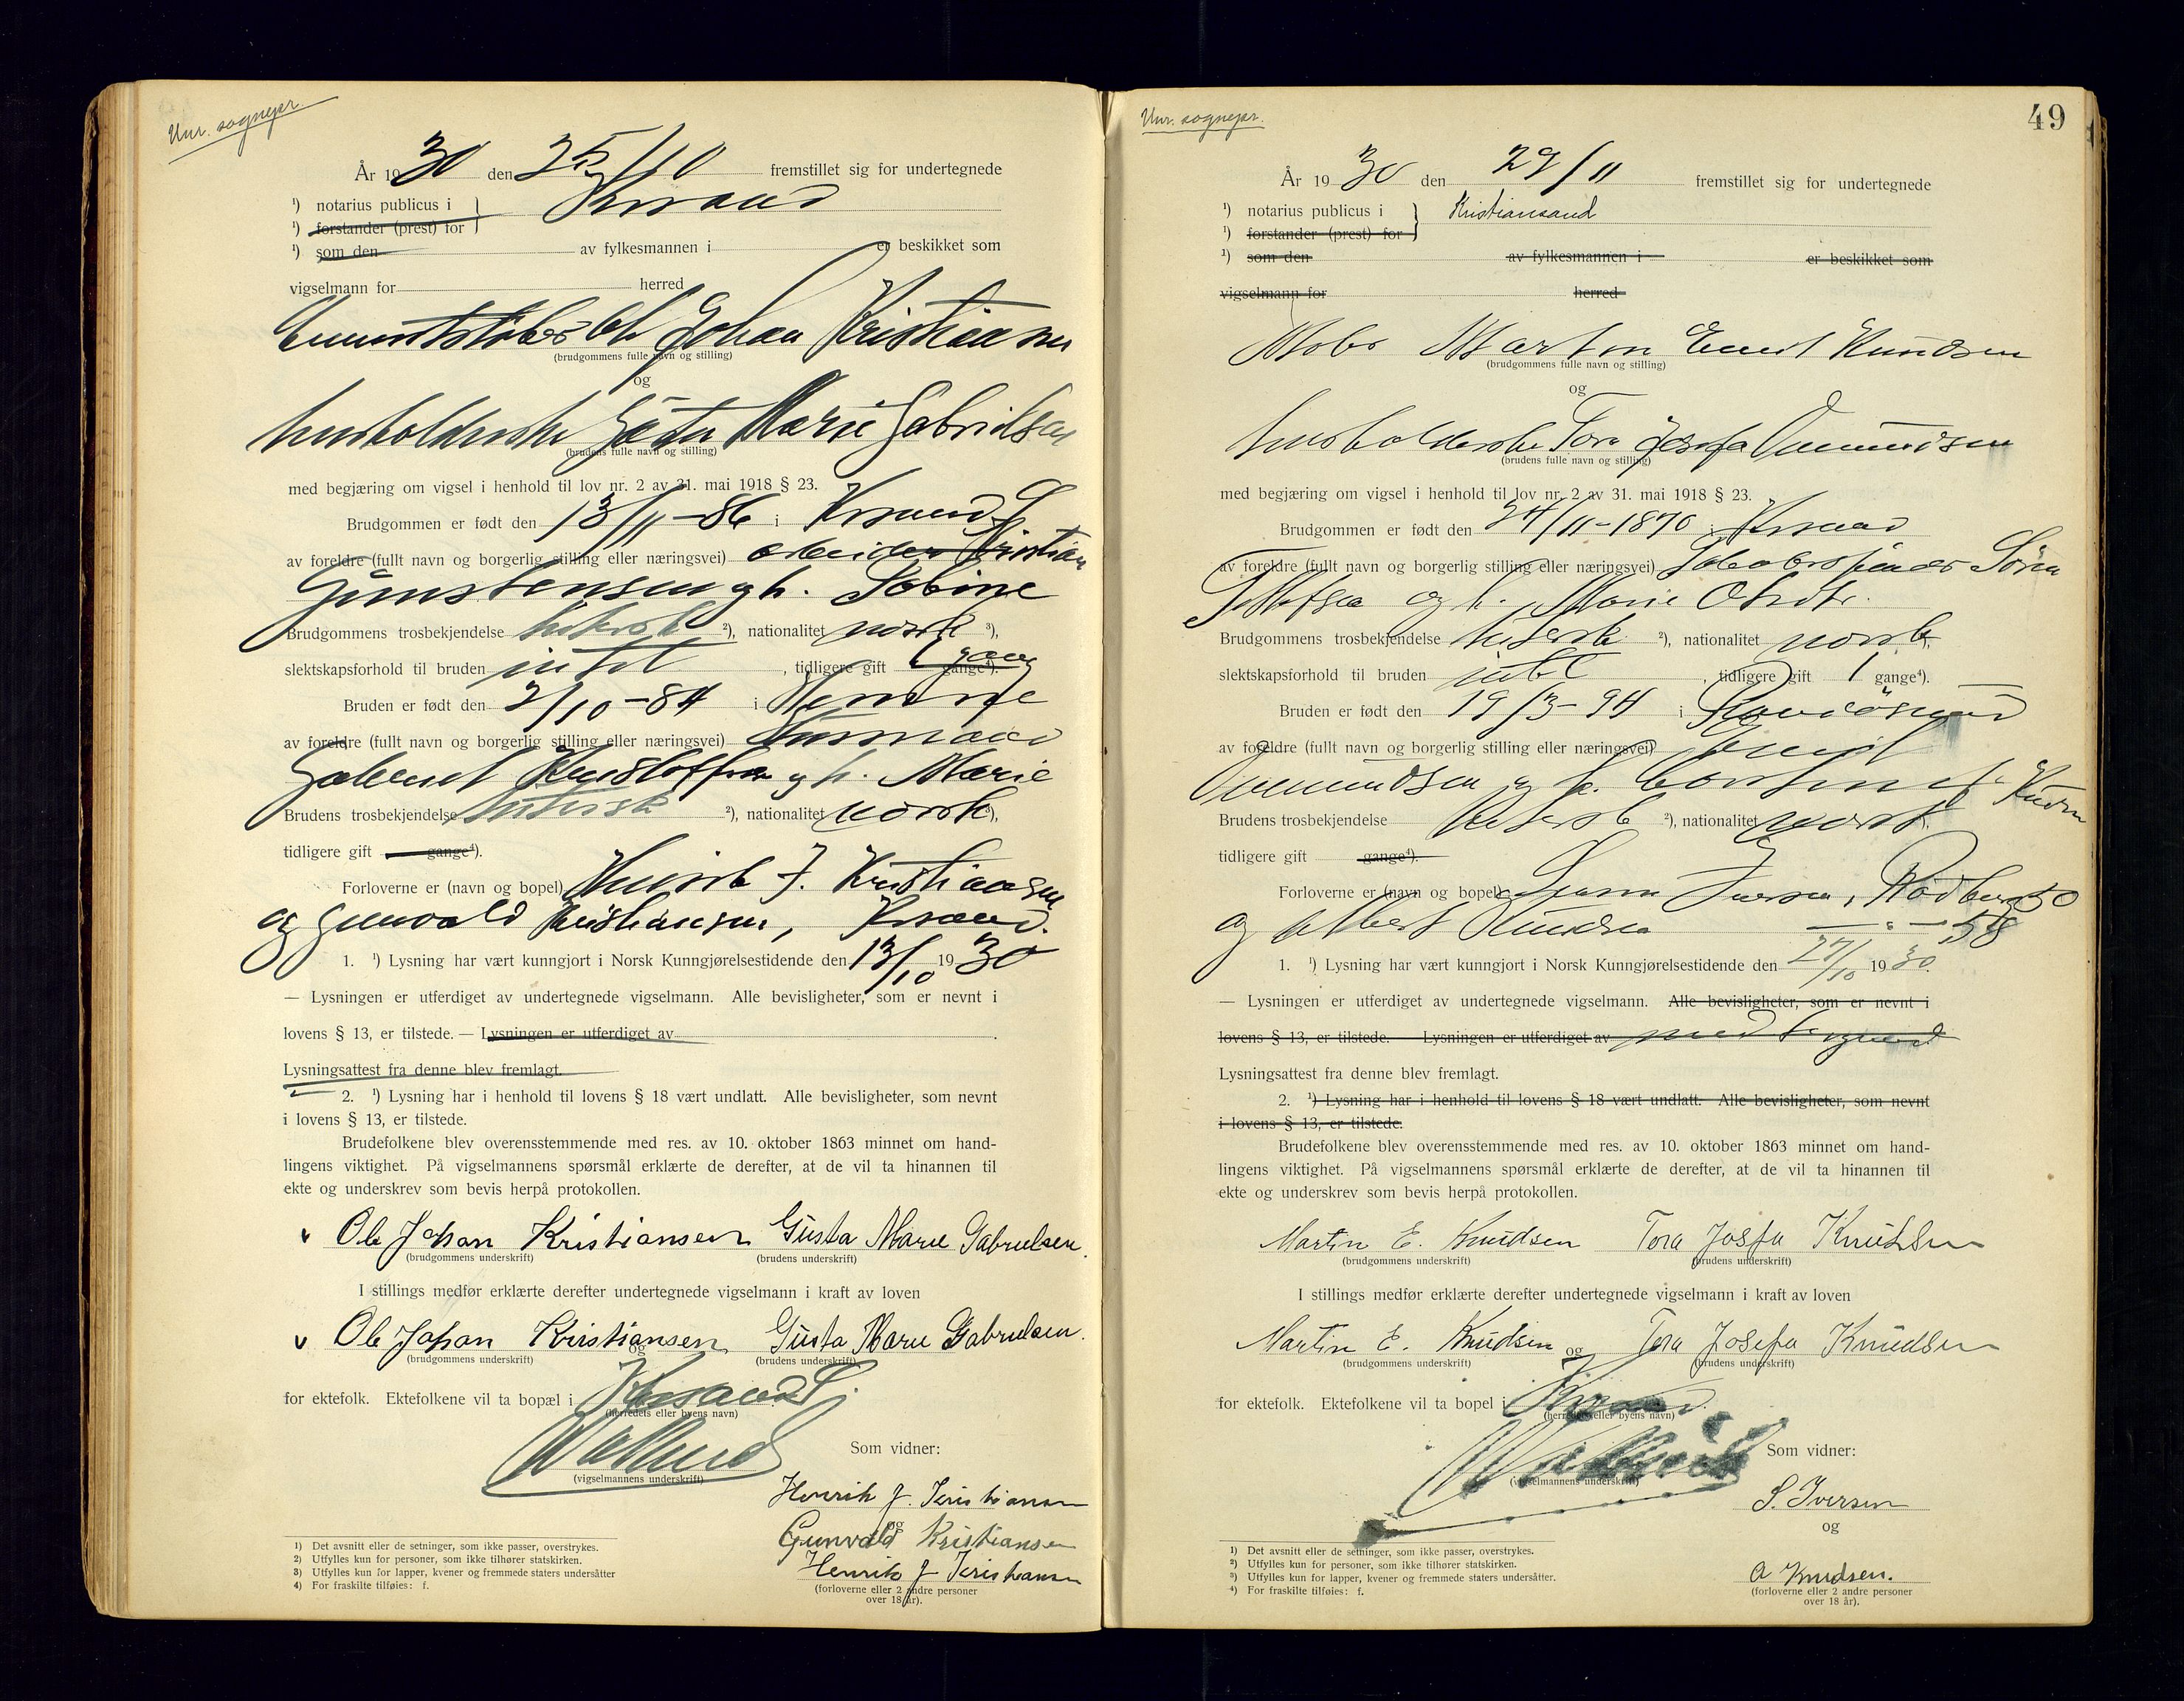 Unr. sognepr.
År 1930 den 25/10 fremstillet sig for undertegnede
¹) notarius publicus i Krsand
¹) forstander (prest) for
¹) som den av fylkesmannen i er beskikket som
vigselmann for herred
Ole Johan Kristiansen
(brudgommens fulle navn og stilling)
og
husholderske Marie Gabrielsen
(brudens fulle navn og stilling)
med begjæring om vigsel i henhold til lov nr. 2 av 31. mai 1918 § 23.
Brudgommen er født den 13/11-86 i Krsand S
av foreldre (fullt navn og borgerlig stilling eller næringsvei) arbeider Kristian
Gunstensen og h. Sobine
Brudgommens trosbekjendelse luthersk ²), nationalitet norsk ³),
slektskapsforhold til bruden intet, tidligere gift 1 gang gange⁴).
Bruden er født den 2/10-84 i
av foreldre (fullt navn og borgerlig stilling eller næringsvei)
og h. Marie
Brudens trosbekjendelse luthersk ²), nationalitet norsk ³),
tidligere gift gange⁴).
Forloverne er (navn og bopel) Henrik J. Kristiansen
og Gunvald Kristiansen, Krsand.
1. ¹) Lysning har vært kunngjort i Norsk Kunngjørelsestidende den 13/10 1930
— Lysningen er utferdiget av undertegnede vigselmann. Alle bevisligheter, som er nevnt i
lovens § 13, er tilstede. — Lysningen er utferdiget av .
Lysningsattest fra denne blev fremlagt.
2. ¹) Lysning har i henhold til lovens § 18 vært undlatt. Alle bevisligheter, som nevnt
i lovens § 13, er tilstede.
Brudefolkene blev overensstemmende med res. av 10. oktober 1863 minnet om hand-
lingens viktighet. På vigselmannens spørsmål erklærte de derefter, at de vil ta hinannen til
ekte og underskrev som bevis herpå protokollen.
v Ole Johan Kristiansen Gusta Marie Gabrielsen.
(brudgommens underskrift) (brudens underskrift)
I stillings medfør erklærte derefter undertegnede vigselmann i kraft av loven
v Ole Johan Kristiansen og Gusta Marie Gabrielsen.
(brudgommens underskrift) (brudens underskrift)
for ektefolk. Ektefolkene vil ta bopæl i Krsand S.
(herredets eller byens navn)
Som vidner:
(vigselmannens underskrift)
Henrik J. Kristiansen
og
Gunvald Kristiansen
Henrik J Kristiansen
(forloverne eller 2 andre personer
over 18 år).
1) Det avsnitt eller de setninger, som ikke passer, overstrykes.
2) Utfylles kun for personer, som ikke tilhører statskirken.
3) Utfylles kun for lapper, kvener og fremmede staters undersåtter
4) For fraskilte tilføies: f.
Unr. sognepr.
49
År 1930 den 29/11 fremstillet sig for undertegnede
¹) notarius publicus i Kristiansand
¹) forstander (prest) for
¹) som den av fylkesmannen i er beskikket som
vigselmann for herred
Martin Emil Knudsen
(brudgommens fulle navn og stilling)
og
husholderske Tora Josefa
(brudens fulle navn og stilling)
med begjæring om vigsel i henhold til lov nr. 2 av 31. mai 1918 § 23.
Brudgommen er født den 24/11-1870 i Krsand
av foreldre (fullt navn og borgerlig stilling eller næringsvei) Sören
og h. Marie
Brudgommens trosbekjendelse luthersk ²), nationalitet norsk,
slektskapsforhold til bruden intet, tidligere gift 1 gange⁴).
Bruden er født den 19/3-94 i
av foreldre (fullt navn og borgerlig stilling eller næringsvei)
og h.
Brudens trosbekjendelse luthersk ²), nationalitet norsk,
tidligere gift gange⁴).
Forloverne er (navn og bopel) Iversen, Rödberg 50
og Albert Knudsen — " — 58
1. ¹) Lysning har vært kunngjort i Norsk Kunngjørelsestidende den 27/10 1930.
— Lysningen er utferdiget av undertegnede vigselmann. Alle bevisligheter, som er nevnt i
lovens § 13, er tilstede. Lysningen er utferdiget av
Lysningsattest fra denne blev fremlagt.
2. ¹) Lysning har i henhold til lovens § 18 vært undlatt. Alle bevisligheter, som nevnt
i lovens § 13, er tilstede.
Brudefolkene blev overensstemmende med res. av 10. oktober 1863 minnet om hand-
lingens viktighet. På vigselmannens spørsmål erklærte de derefter, at de vil ta hinannen til
ekte og underskrev som bevis herpå protokollen.
Martin E. Knudsen Tora Josfa Knudsen
(brudgommens underskrift) (brudens underskrift)
I stillings medfør erklærte derefter undertegnede vigselmann i kraft av loven
Martin E. Knudsen og Tora Josefa Knudsen
(brudgommens underskrift) (brudens underskrift)
for ektefolk. Ektefolkene vil ta bopel i Krsand.
(herredets eller byens navn)
Som vidner:
(vigselmannens underskrift)
S. Iversen
og
A Knudsen.
(forloverne eller 2 andre personer
over 18 år).
1) Det avsnitt eller de setninger, som ikke passer, overstrykes.
2) Utfylles kun for personer, som ikke tilhører statskirken.
3) Utfylles kun for lapper, kvener og fremmede staters undersåtter.
4) For fraskilte tilføies: f.